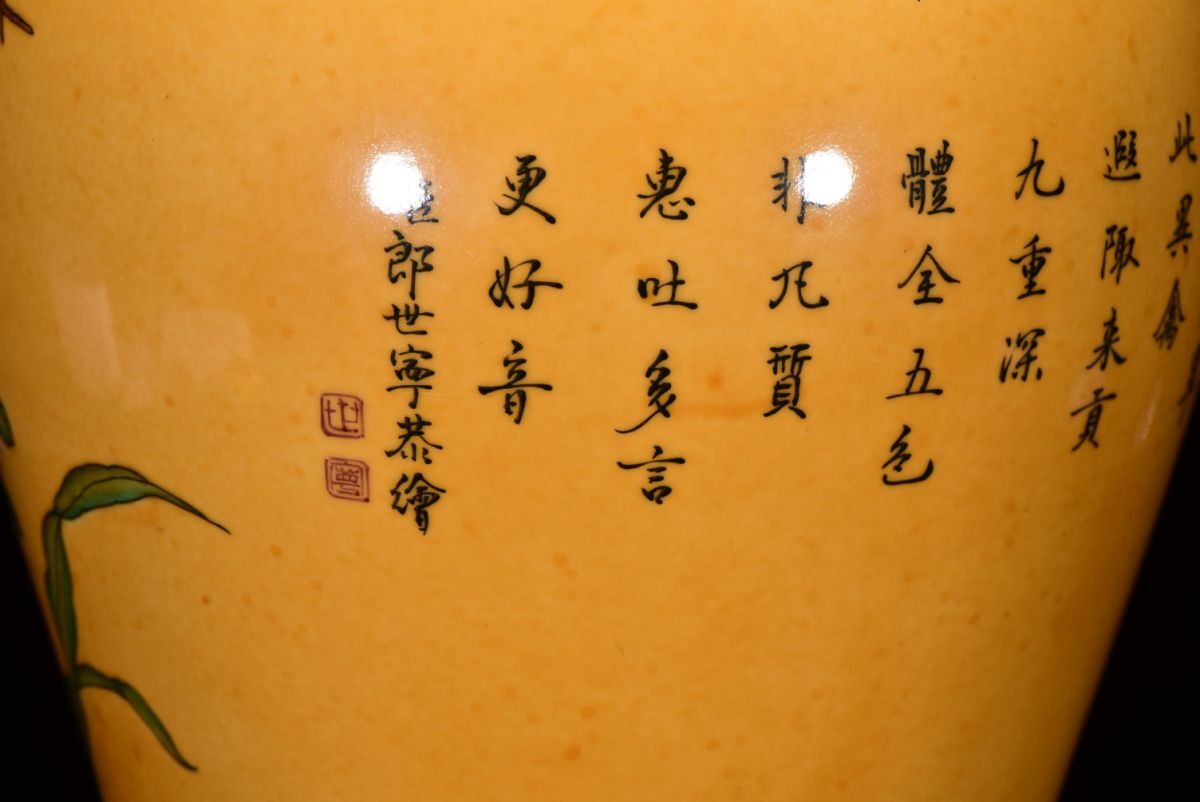 此異禽
遐陬来貢
九重深
體全五色
非凡質
惠吐多言
更好音
臣郎世寧恭繪
世
寧